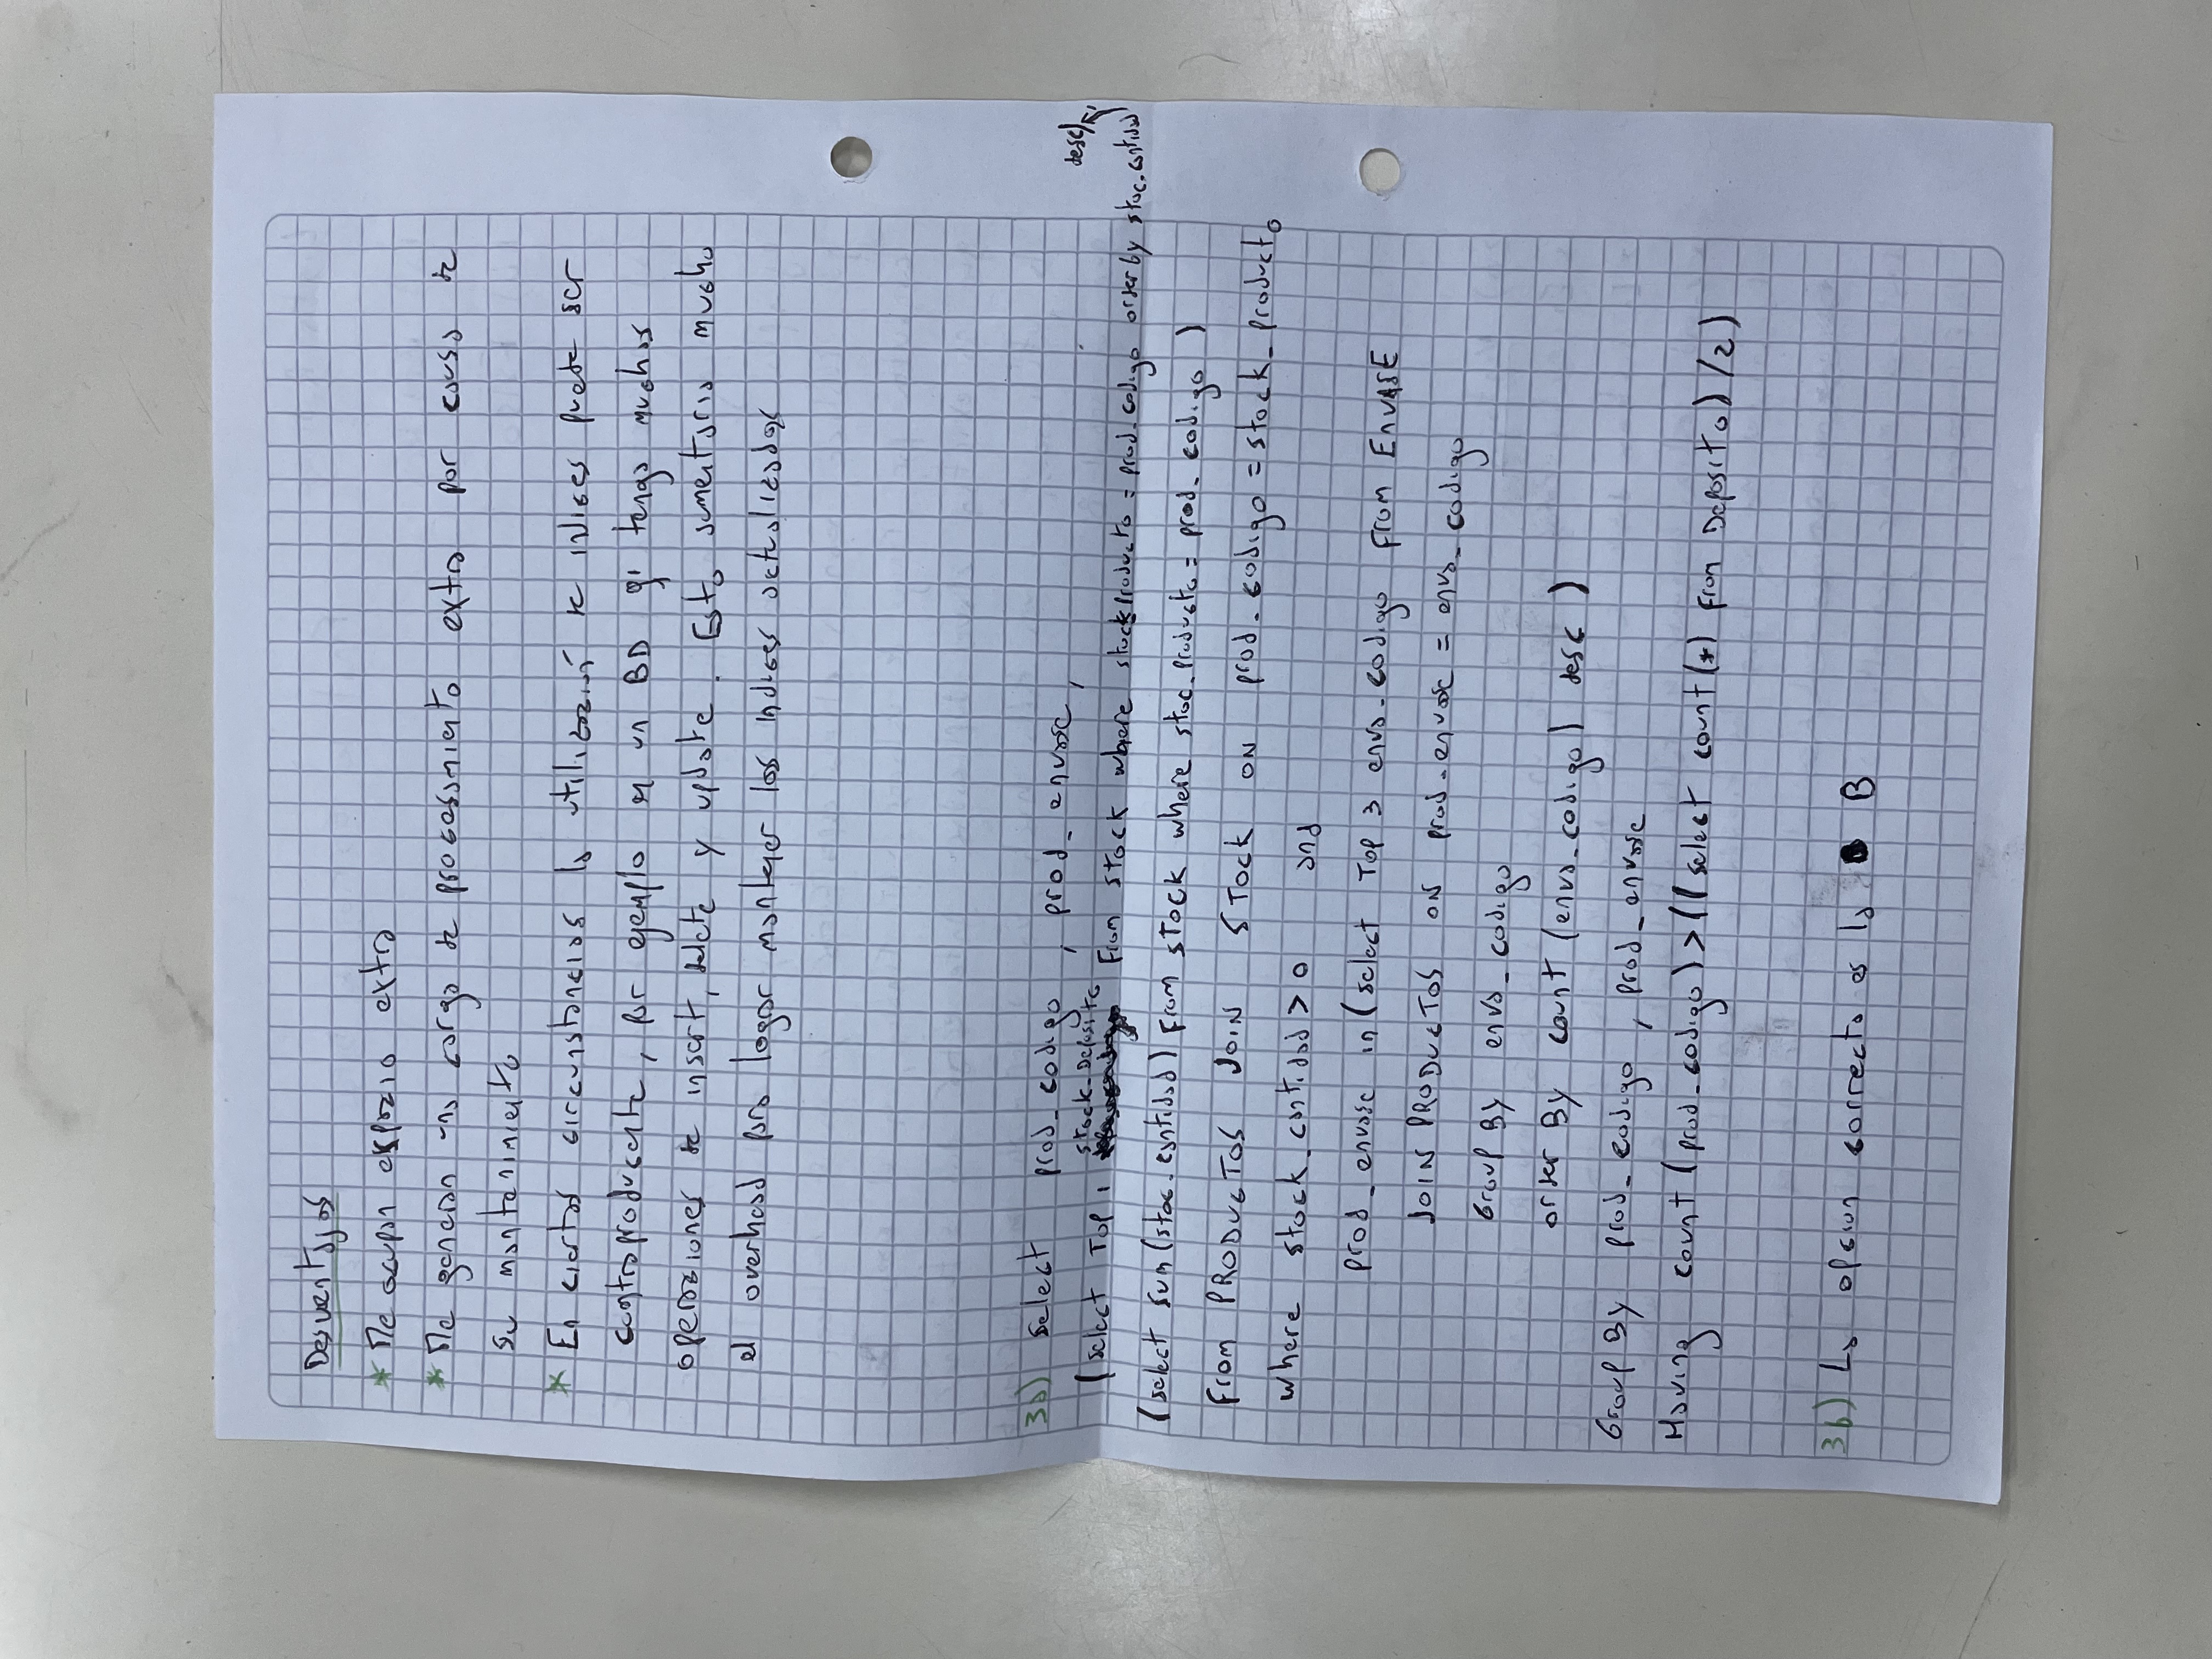 Desventajas
* Me ocupan espacio extra
* Me generan una carga de procesamiento extra por causa de
su mantenimiento
* En ciertas circunstancias la utilización de indices puede ser
contraproducente, por ejemplo en un BD q' tengo muchas
operaciones de insert, delete y update. Esto aumentaria mucho
el overhead para lograr mantener los indices actualizados
3a) Select prod_codigo, prod_envase,
(select Top 1 stock_Deposito From stock where stock_producto = prod_codigo order by stoc_cantidad desc),
(select sum(stoc_cantidad) From STOCK where stoc_producto = prod_codigo)
From PRODUCTOS JOIN STOCK ON prod_codigo = stock_producto
where stock_cantidad > 0 and
prod_envase in (select Top 3 enva_codigo From ENVASE
JOIN PRODUCTOS ON prod_envase = enva_codigo
Group By enva_codigo
order By count (enva_codigo) desc )
Group By prod_codigo, prod_envase
Having count (prod_codigo) > ((select count(*) From Deposito) /2)
3b) La opcion correcta es la B